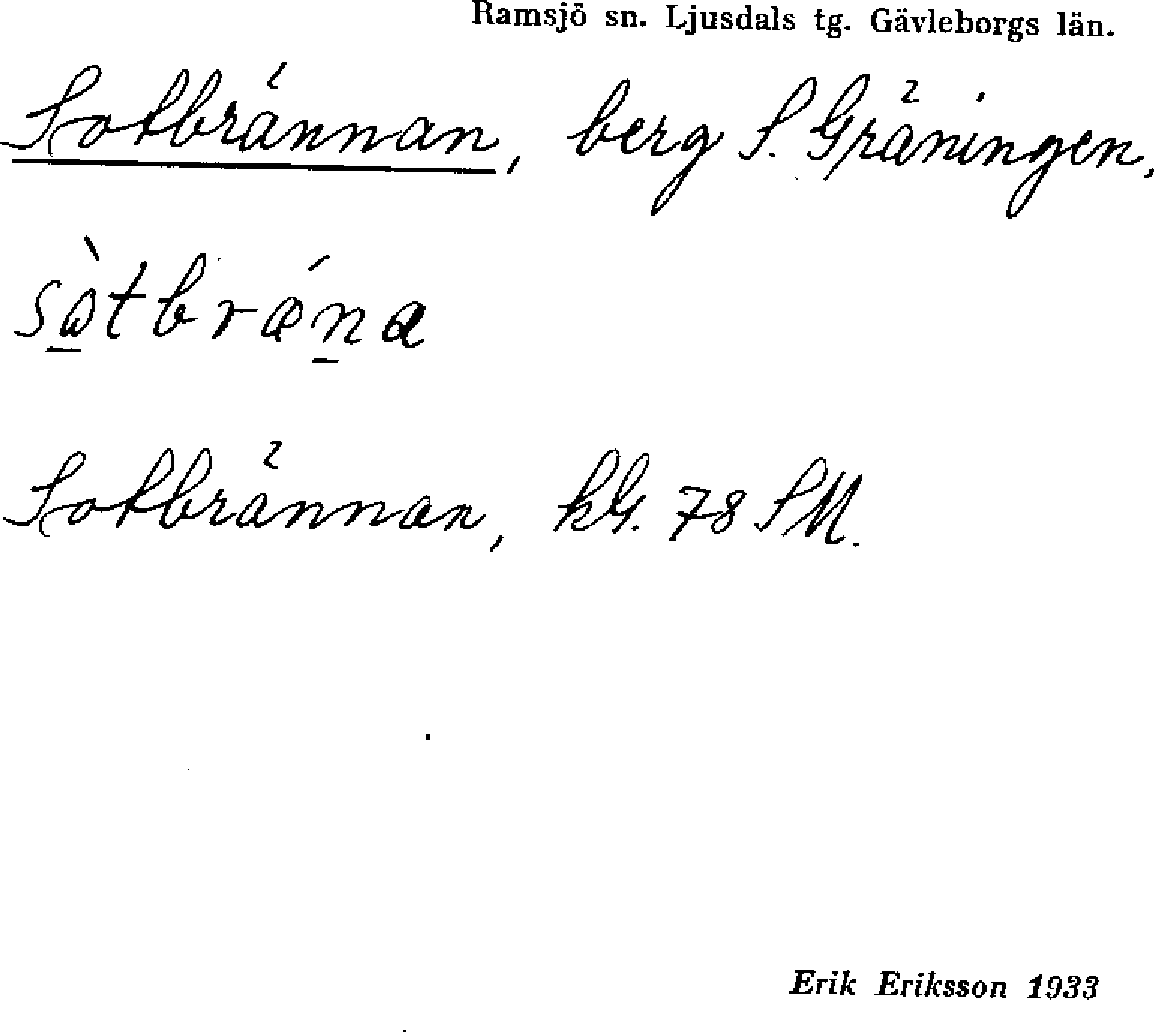 Ramsjö sn. Ljusdals tg. Gävleborgs län.
Sotbrännan, berg S. Gräningen.
sὼtbrǽn̲a
Sotbrännan, kG. 78 SM.
Erik Eriksson 1933